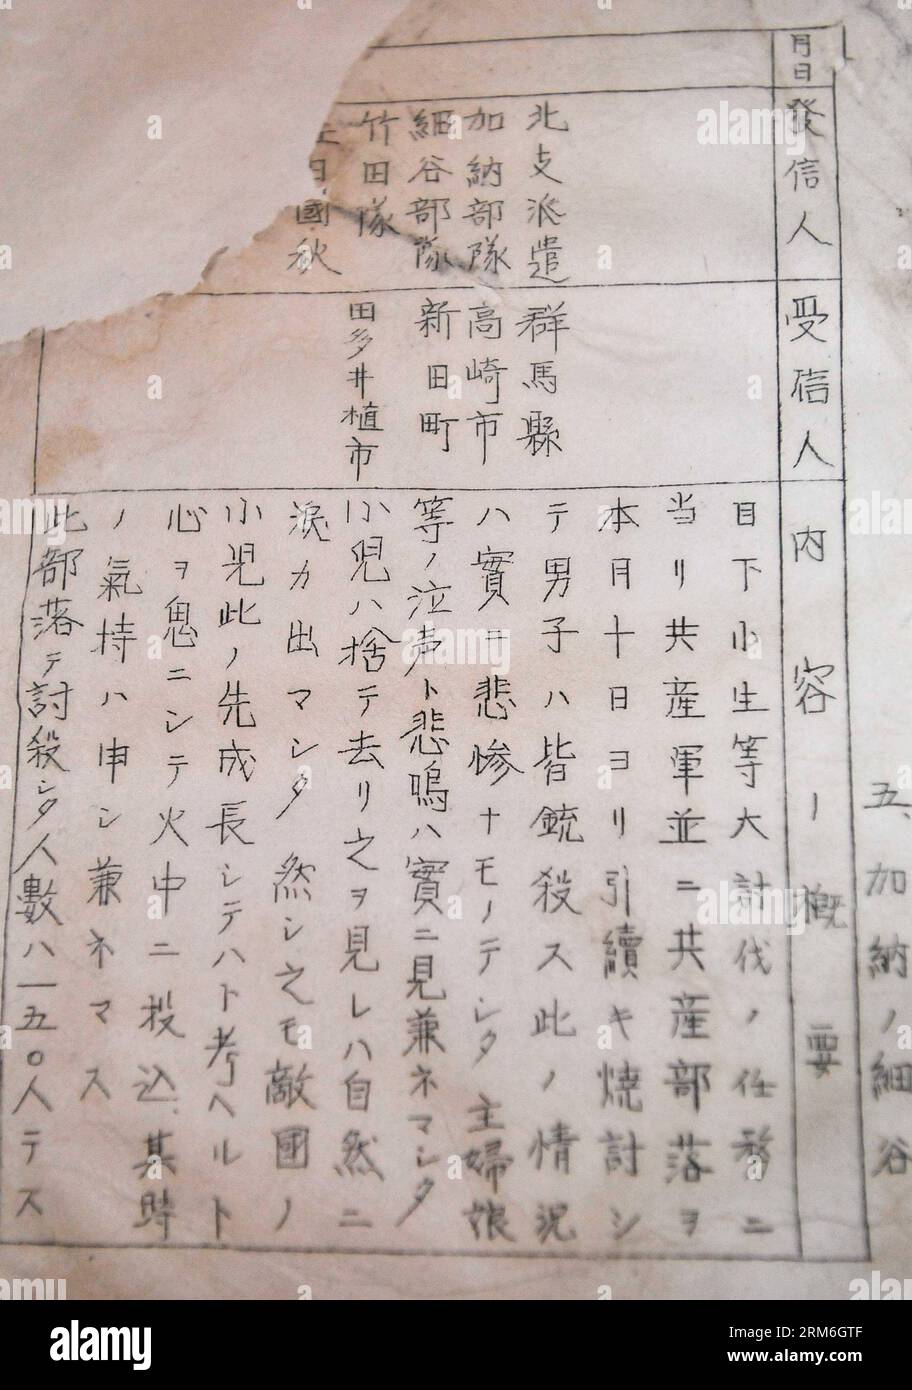 五、加納ノ細谷
月日
發信人
受信人
内容ノ概要
北支派遣
加納部隊
細谷部隊
竹田隊
田國秋
群馬縣
高崎市
新田町
田多井植市
目下小生等大討伐ノ任務ニ
当リ共産軍並ニ共産部落ヲ
本月十日ヨリ引續キ焼討シ
テ男子ハ皆銃殺ス此ノ情況
ハ實ニ悲惨ナモノデシタ主婦娘
等ノ泣声ト悲鳴ハ實ニ見兼ネマシタ
小児ハ捨テ去リ之ヲ見レハ自然ニ
淚カ出マシタ 然シ之モ敵國ノ
小児此ノ先成長シテハト考ヘルト
心ヲ鬼ニシテ火中ニ投込、其時
ノ氣持ハ申シ兼ネマス
此部落デ討殺シタ人數ハ一五〇人デス
alamy
2RM6GTF
www.alamy.com